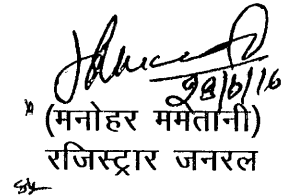 28/6/16
(मनोहर ममतानी)
रजिस्ट्रार जनरल